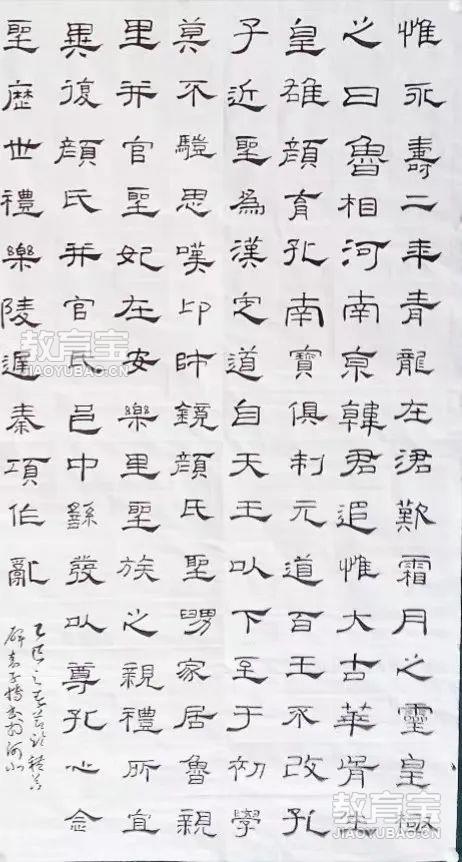 惟永壽二年青龍在涒歎霜月之靈皇極
之日魯相河南京韓君追惟大古華胥生
皇雄顏育孔南寶俱制元道百王不改孔
子近聖為漢定道自天王以下至于初學
莫不驥思嘆卬師鏡顏氏聖舅家居魯親
里并官聖妃在安樂里聖族之親禮所宜
異復顏氏并官氏邑中繇發以尊孔心念
聖歷世禮樂陵遲秦項作亂
教育宝
JIAOYUBAO.CN
教育宝
JIAOYUBAO.CN